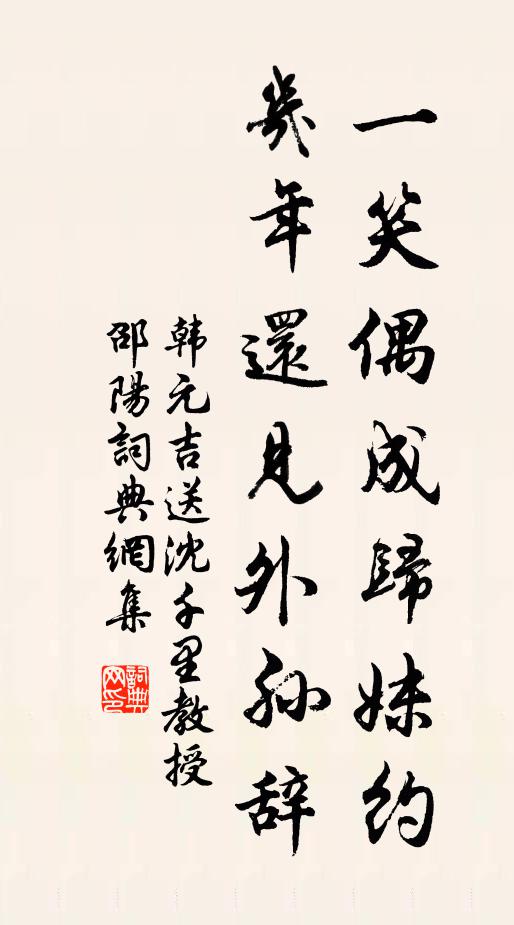 一笑偶成歸妹约
幾年還見外孙辞
韩元吉送沈千里教授
邵陽詞典網集
詞典网印